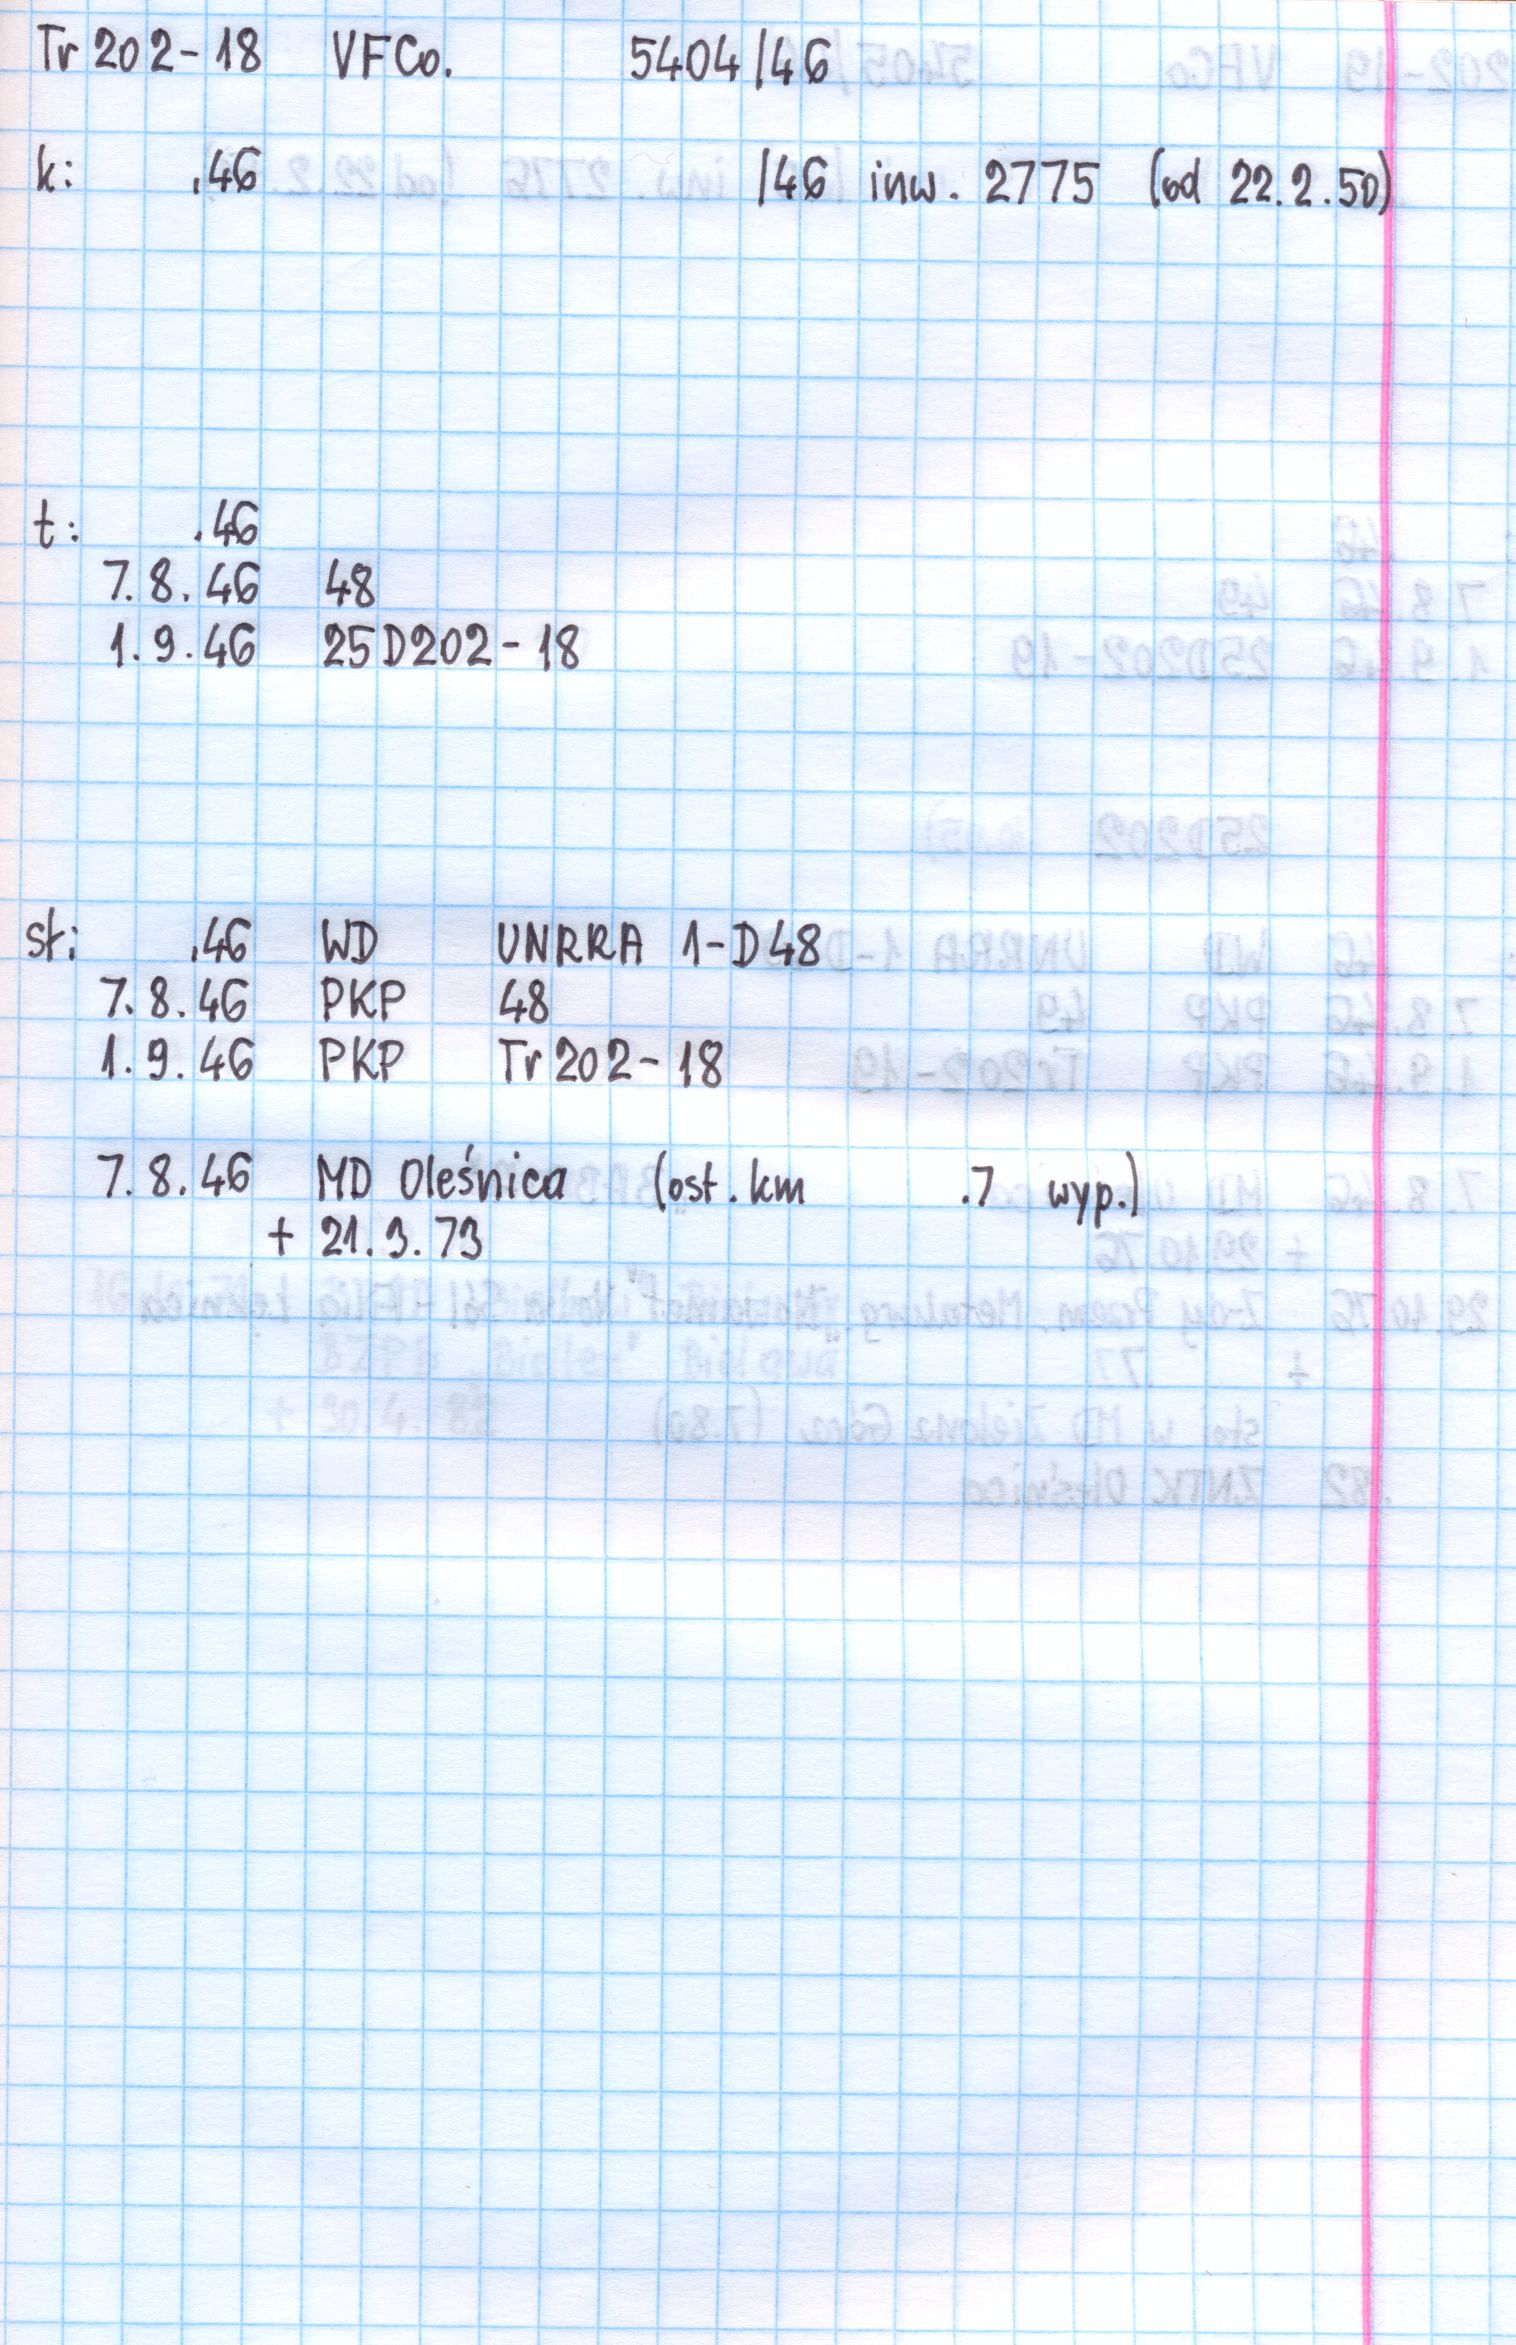 Tr 202-18 VFCo. 5404/46
k: .46 /46 inw. 2775 (od 22.2.50)
t: .46
7.8.46 48
1.9.46 25D202-18
st: .46 WD UNRRA 1-D48
7.8.46 PKP 48
1.9.46 PKP Tr 202-18
7.8.46 MD Oleśnica (ost. km .7 wyp.)
+ 21.3.73